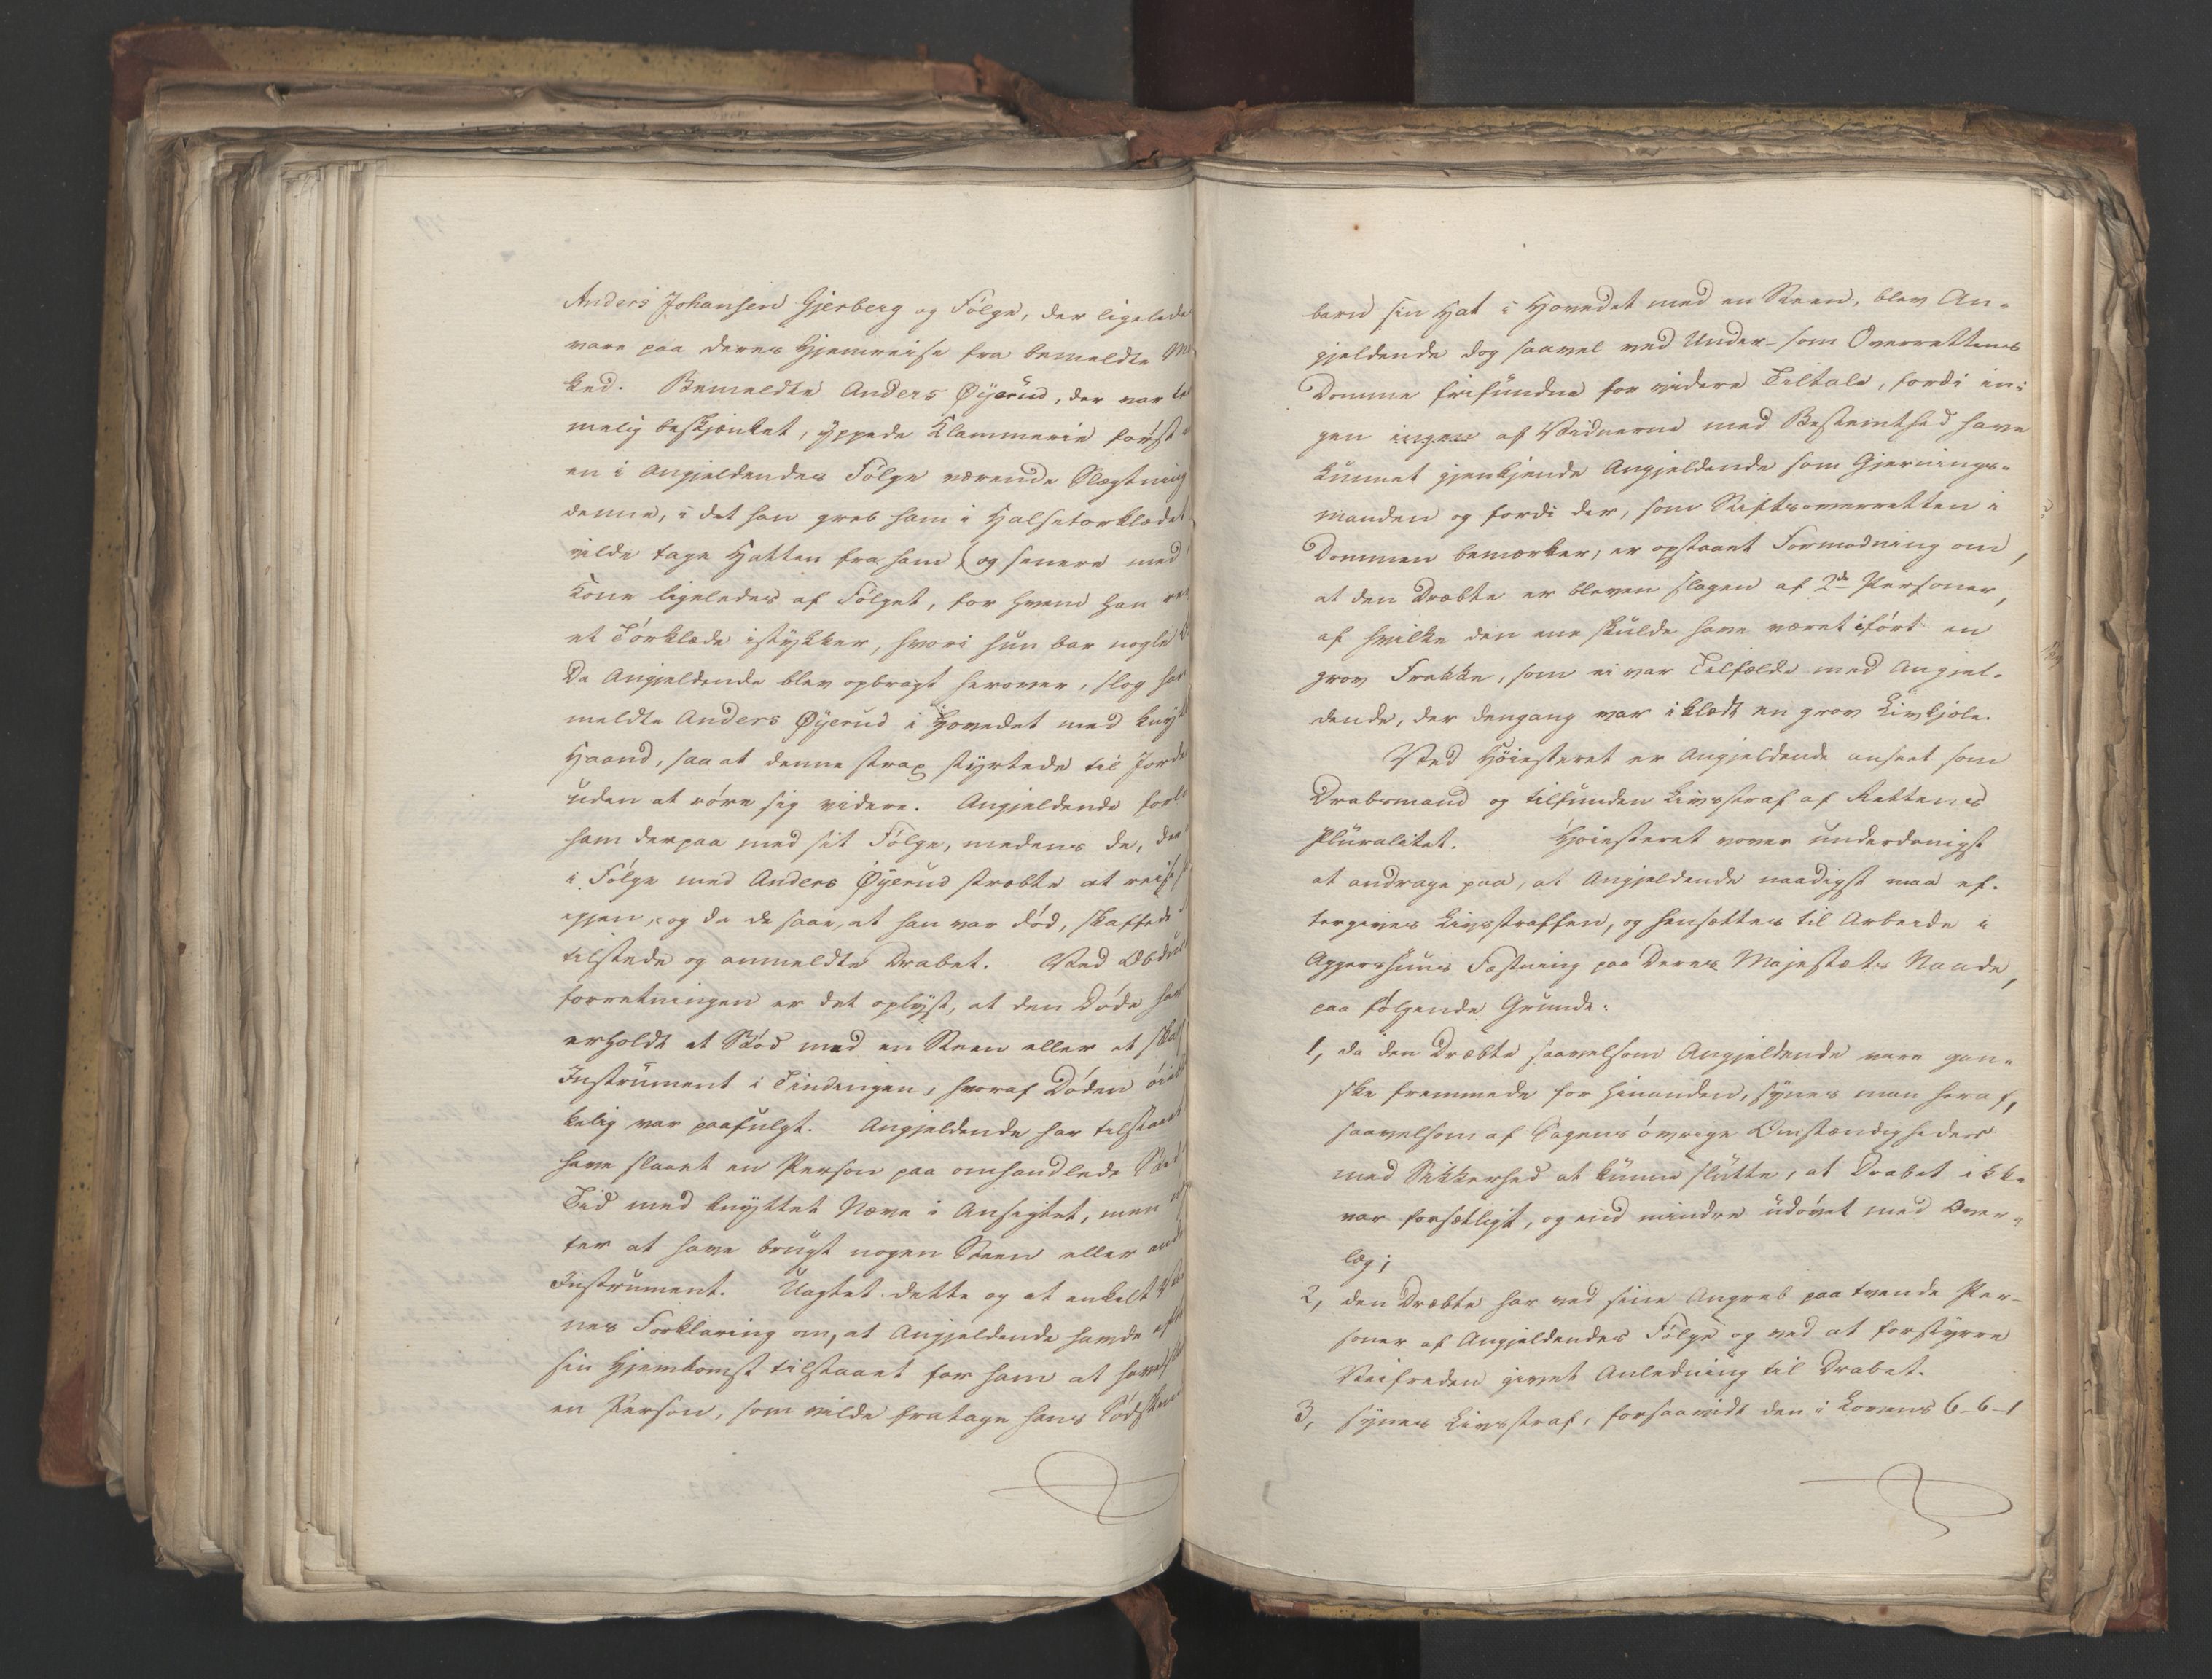 Anders Johansen Gjerberg og Følge, der ligelede
vare paa deres Hjemreise fra bemeldte
ked. Bemeldte Anders Øyerud, der var
melig beskjænket, yppede Klammerie først
en i Angjeldendes Følge værende Slægtning
denne, i det han greb ham i Halstørklædet
vilde tage Hatten fra ham (og senere med
Kone ligeledes af Følget, for hvem han
et Tørklæde istykker, hvori hun bar nogle
Da Angjeldende blev opbragt herover, slog han
meldte Anders Øyerud i Hovedet med knyt
Haand, saa at denne strax styrtede til Jorde
uden at røre sig videre. Angjeldende forlo
ham derpaa med sit Følge, medens de, der
i Følge med Anders Øyerud stræbte at reise
igjen, og da de saae, at han var død, skaffede
tilstede og anmeldte Drabet. Ved Obduc
forretningen er det oplyst, at den Døde hav
erholdt et Stød med en Steen eller et skar
Instrument i Tindingen, hvoraf Døden øieb
kelig var paafulgt. Angjeldende har tilstaaet
have slaaet en Person paa omhandlede Sted
Tid med knyttet Næve i Ansigtet, men
ter at have brugt nogen Steen eller and
Instrument. Uagtet dette og et enkelt Vid
nes Forklaring om, at Angjeldende havde eft
sin Hjemkomst tilstaaet for ham at have
en Person, som vilde fratage hans
barn sin Hat i Hovedet med en Steen, blev An-
gjeldende dog saavel ved Under- som Overrettens
Domme frifunden for videre Tiltale, fordi in-
gen ingen af Vidnerne med Bestemthed have
kunnet gjenkjende Angjeldende som Gjernings-
manden og fordi der, som Stiftsoverretten i
Dommen bemærker, er opstaaet Formodning om,
at den Dræbte er bleven slagen af 2de Personer,
af hvilke den ene skulde have været iført en
grov Frakke, som ei var Tilfælde med Angjel-
dende, der dengang var iklædt en grov Livkjole.
Ved Høiesteret er Angjeldende anseet som
Drabsmand og tilfunden Livsstraf af Rettens
Pluralitet. Høiesteret vover underdanigst
at andrage paa, at Angjeldende naadigst maa ef-
tergives Livsstraffen, og hensættes til Arbeide i
Aggershuus Fæstning paa Deres Majestæts Naade,
paa følgende Grunde:
1, da den Dræbte saavelsom Angjeldende vare gan-
ske fremmede for hinanden, synes man heraf,
saavelsom af Sagens øvrige Omstændigheder
med Sikkerhed at kunne slutte, at Drabet ikke
var forsætligt, og end mindre udøvet med Over-
læg;
2, den Dræbte har ved sine Angreb paa tvende Per-
soner af Angjeldendes Følge og ved at forstyrre
Veifreden givet Anledning til Drabet.
3, synes Livsstraf, forsaavidt den i Lovens 6-6-1